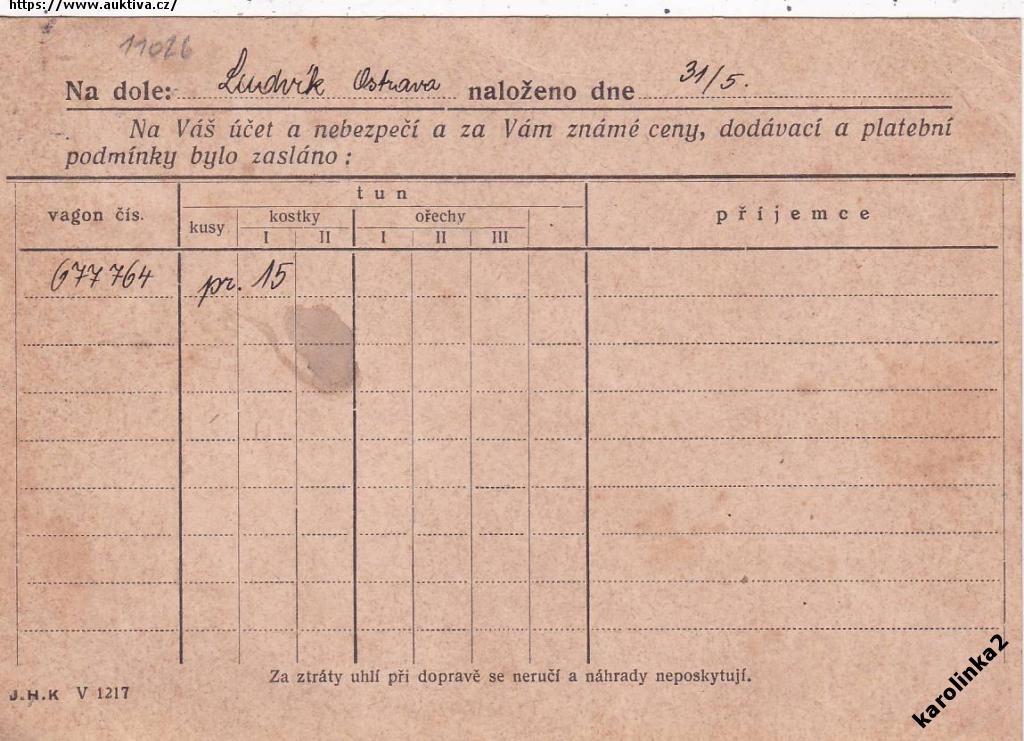 https://www.auktiva.cz/
11026
Na dole: Ludvík Ostrava naloženo dne 31/5.
Na Váš účet a nebezpečí a za Vám známé ceny, dodávací a platební
podmínky bylo zasláno:
tun
vagon čís. kusy kostky ořechy příjemce
I II I II III
677764 pr. 15
Za ztráty uhlí při dopravě se neručí a náhrady neposkytují.
J.H.K V 1217
karolinka2